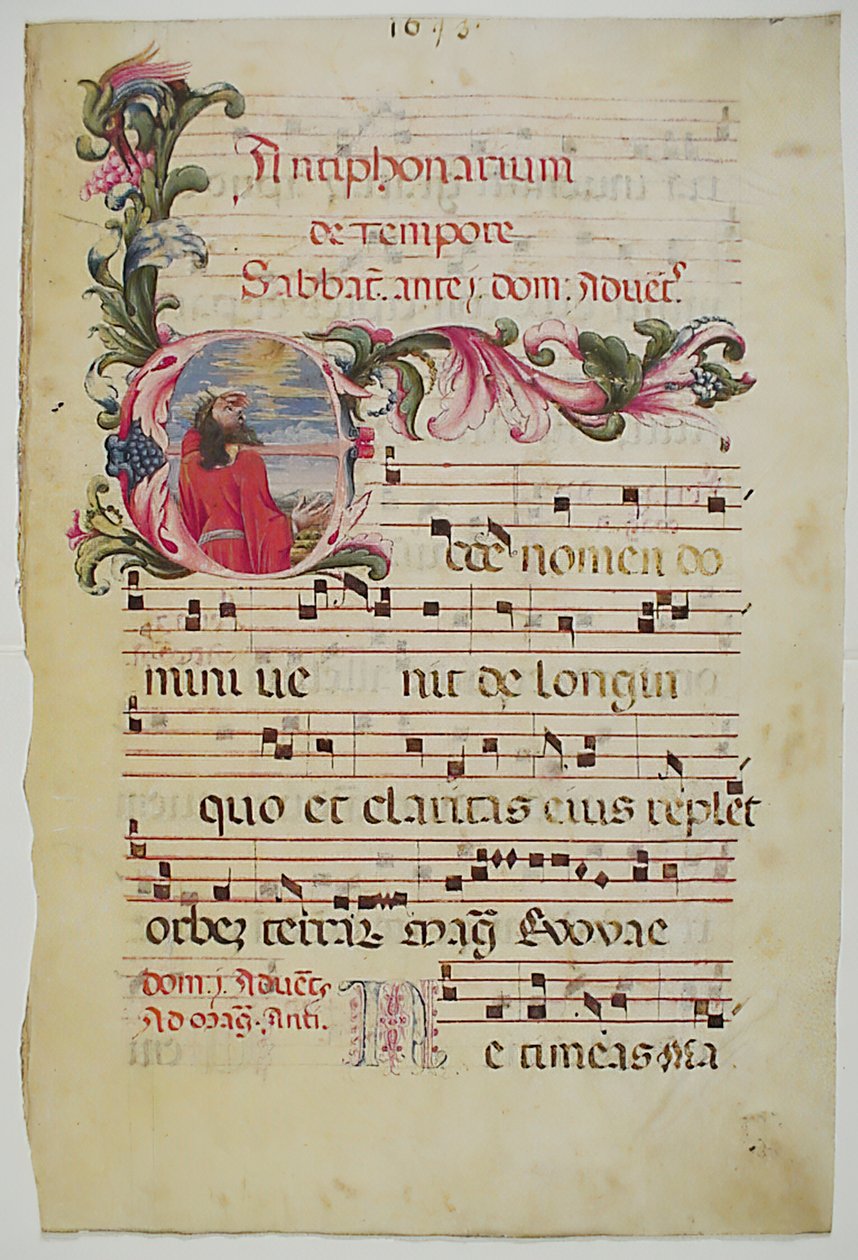 1673.
Antiphonarium
de Tempore
Sabbat̃. ante j. dom: Aduẽt.
Ecce nomen do
mini ue nit de longin
quo et claritas eius replet
orbez terrar. Mag̃ Evovae
Dom: j. Aduẽt.
Ad Mag̃. Anti.
Ne timeas Ma